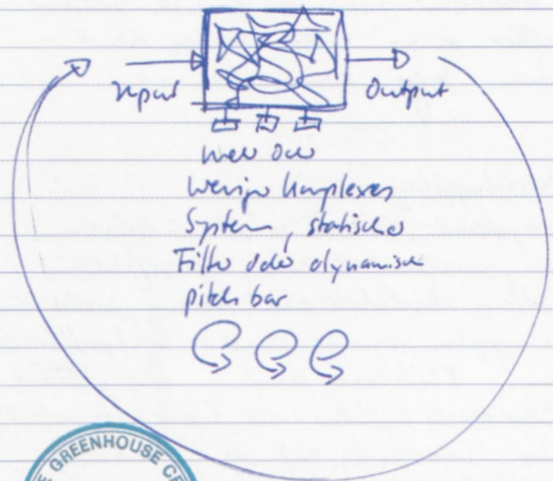 Input
Output
mehr oder
weniger komplexes
System, statischer
Filter oder dynamisch
pitchbar
GREENHOUSE